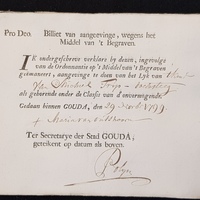 Pro Deo. Billiet van aangevinge, wegens het
Middel van 't Begraven.
IK ondergeschreve verklare by deezen, ingevolge
van de Ordonnantie op 't Middel van 't Begraven
geëmaneert, aangevinge te doen van het Lyk van
als gehorende onder de Classe van d'onvermogende.
Gedaan binnen GOUDA, den 29 1799
Maria van
Ter Secretarye der Stad GOUDA,
geteikent op datum als boven.